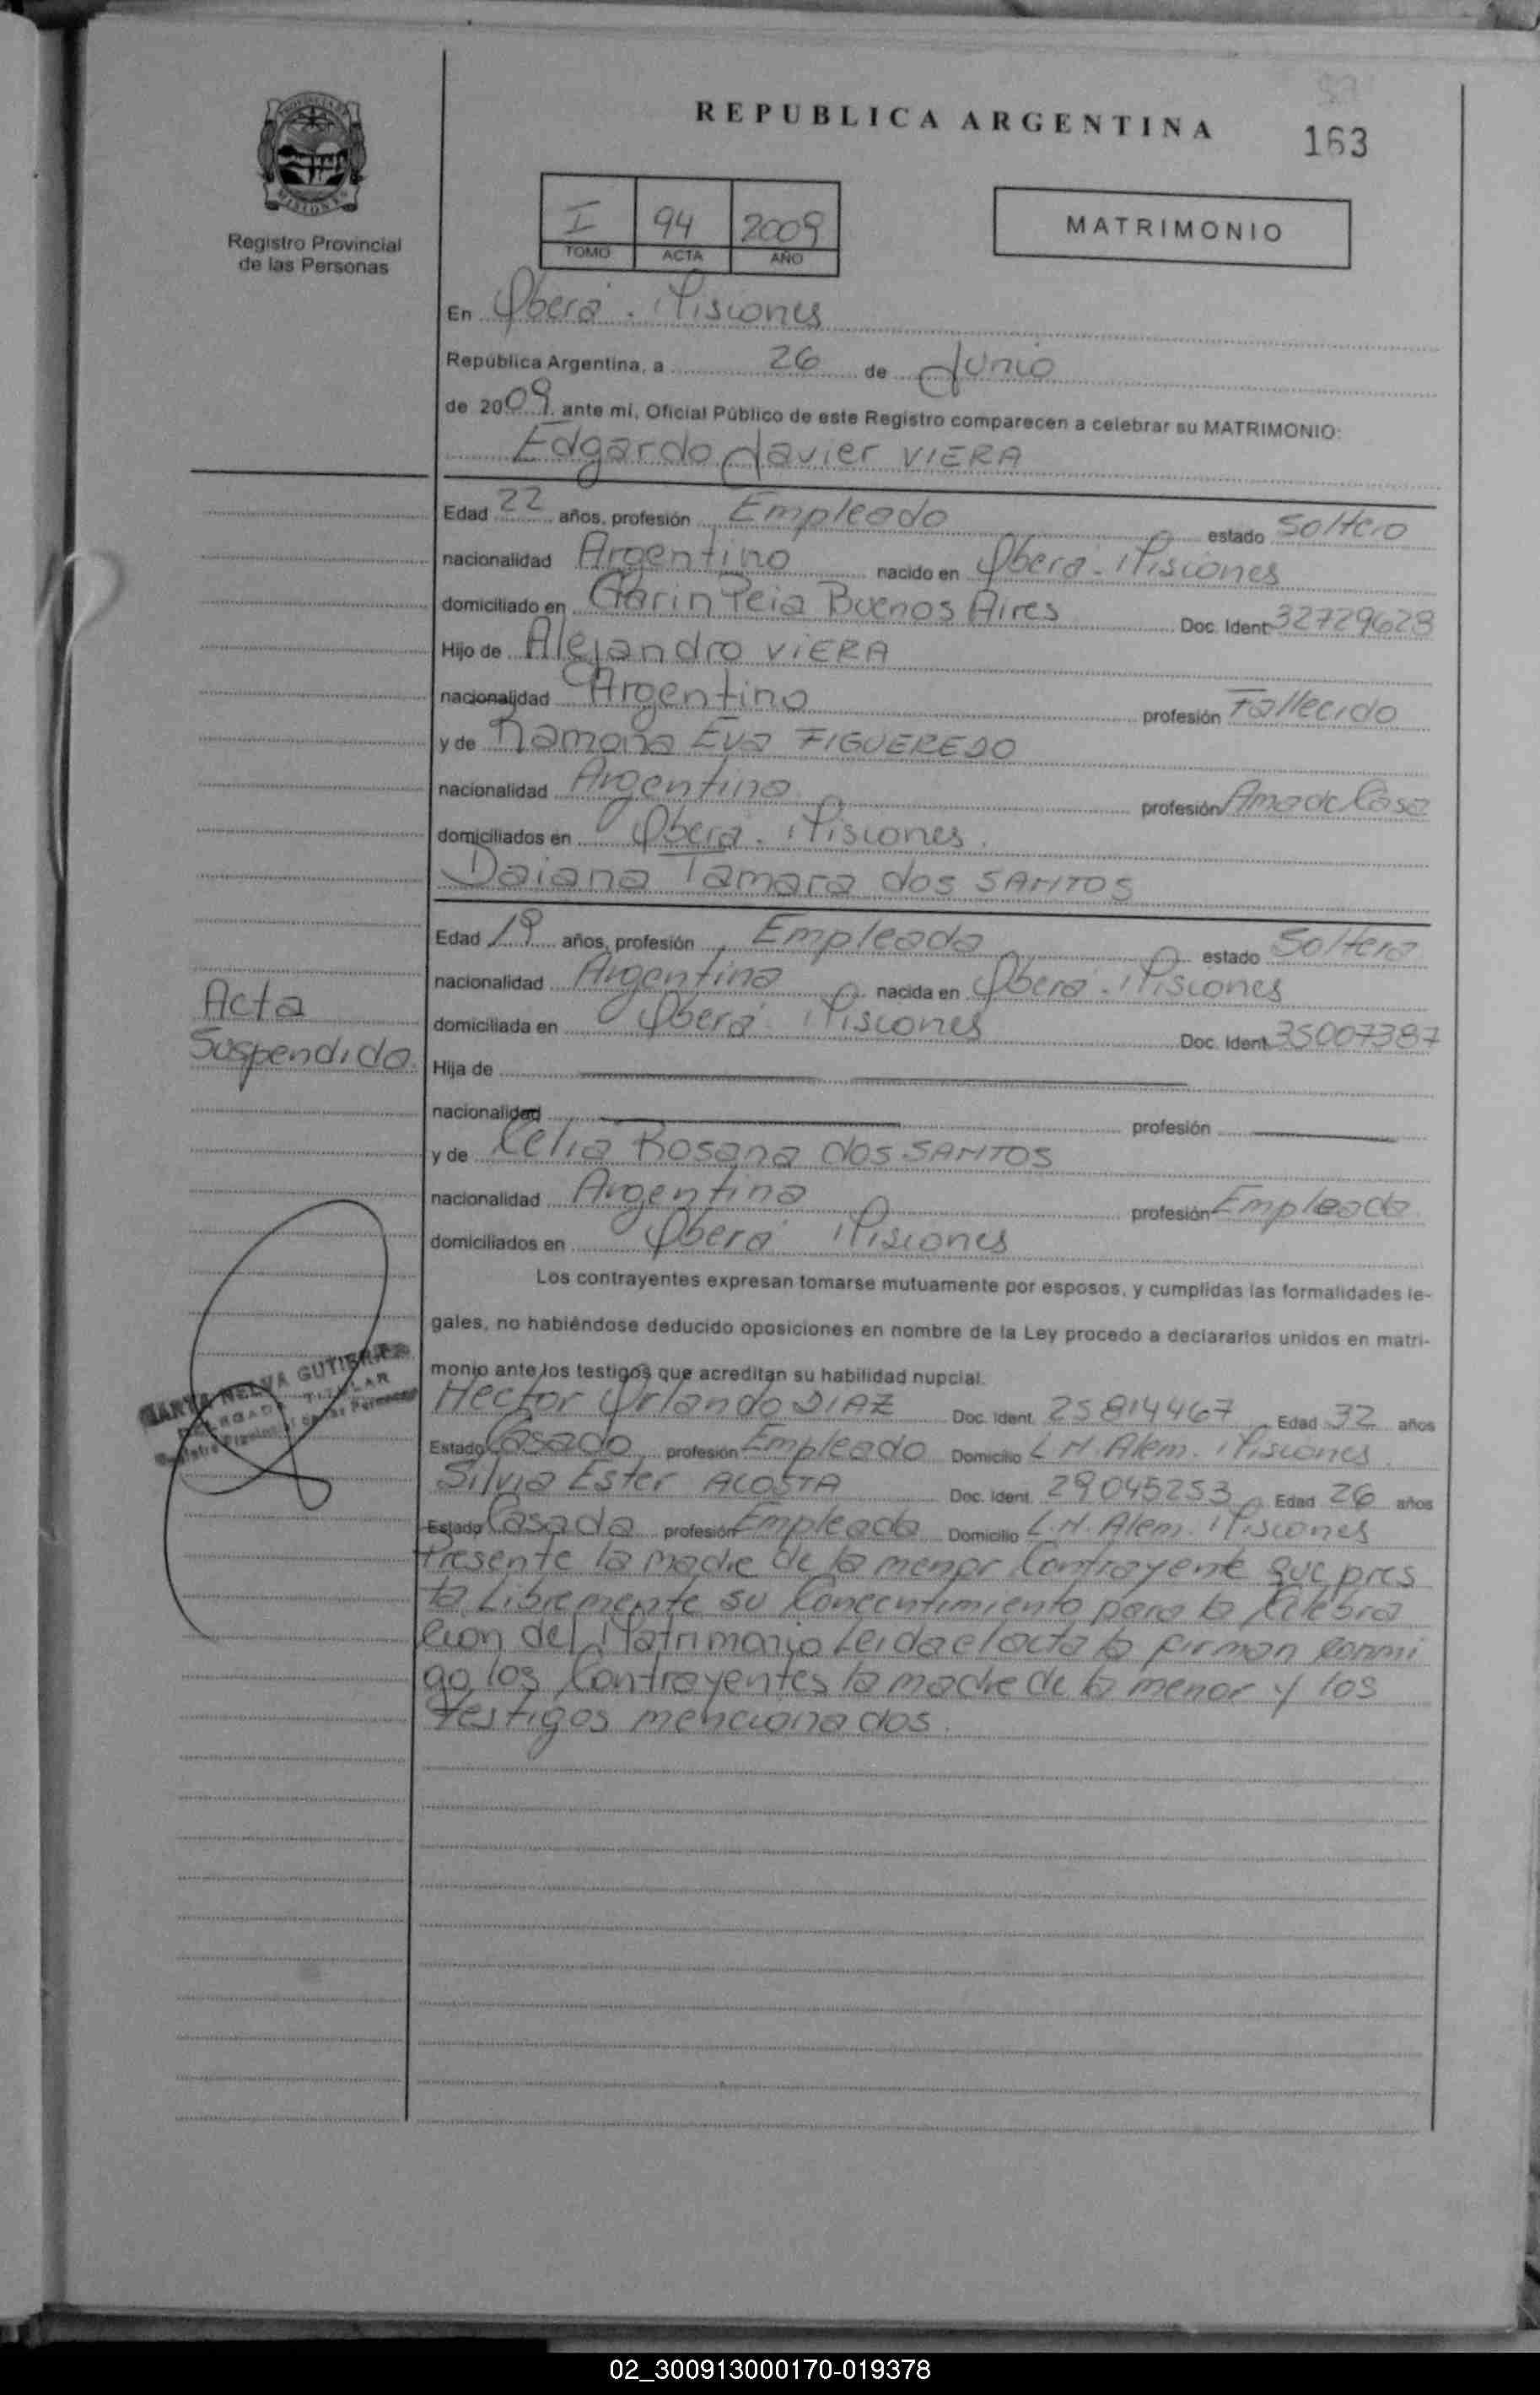 REPUBLICA ARGENTINA
163
PROVINCIA DE
MISIONES
Registro Provincial
de las Personas
I 94 2009
TOMO ACTA AÑO
MATRIMONIO
En Oberá - Misiones
República Argentina, a 26 de Junio
de 2009 ante mí, Oficial Público de este Registro comparecen a celebrar su MATRIMONIO:
Edgardo Javier VIERA
Edad 22 años, profesión Empleado estado Soltero
nacionalidad Argentino nacido en Oberá - Misiones
domiciliado en Garin Pcia Buenos Aires Doc. Ident 32729628
Hijo de Alejandro VIERA
nacionalidad Argentino profesión Fallecido
y de Ramona Eva FIGUEREDO
nacionalidad Argentina profesión Ama de Casa
domiciliados en Oberá - Misiones.
Daiana Tamara dos SANTOS
Edad 19 años, profesión Empleada estado Soltera
nacionalidad Argentina nacida en Oberá - Misiones
domiciliada en Oberá - Misiones Doc. Ident. 35007387
Acta
Suspendida.
Hija de
nacionalidad profesión
y de Celia Rosana dos SANTOS
nacionalidad Argentina profesión Empleada
domiciliados en Oberá Misiones
Los contrayentes expresan tomarse mutuamente por esposos, y cumplidas las formalidades le-
gales, no habiéndose deducido oposiciones en nombre de la Ley procedo a declararlos unidos en matri-
monio ante los testigos que acreditan su habilidad nupcial.
MARTA NELVA GUTIERREZ
DELEGADA TITULAR
Registro Provincial de las Personas
Hector Orlando DIAZ Doc. Ident. 25814467 Edad 32 años
Estado Casado profesión Empleado Domicilio L.N. Alem. Misiones.
Silvia Ester ACOSTA Doc. Ident. 29045253 Edad 26 años
Estado Casada profesión Empleada Domicilio L.N. Alem. Misiones
Presente la madre de la menor Contrayente que pres
ta Libremente su Concentimiento para la Celebra
cion del Matrimonio Leida el acta la firman conmi
go los Contrayentes la madre de la menor y los
testigos mencionados.
02_300913000170-019378